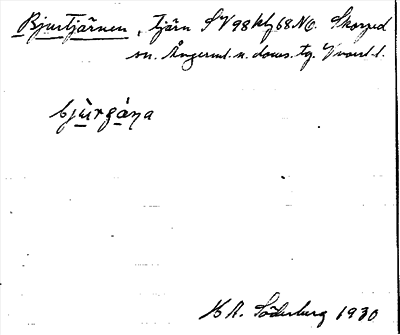 Bjurtjärnen, tjärn SV98kbf68NO. Skorped
sn. Ångerml. n. doms. tg. V
bjùrgáṇa
H A. Söderberg 1930